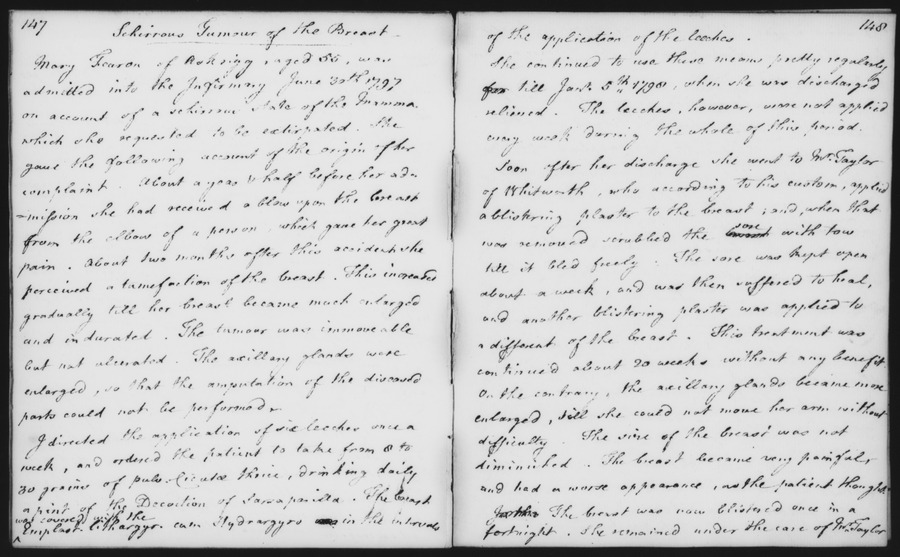 147
Schirrous Tumour of the Breast
Mary Fearon of , aged 55, was
admitted into the Infirmary June 30th 1797
on account of a schirrous state of the Mamma
which she requested to be extirpated. She
gave the following account of the origin of her
complaint. About a year & half before her ad=
=mission she had received a blow upon the breast
from the elbow of a person, which gave her great
pain. About two months after this accident she
perceived a tumefaction of the breast. This increased
gradually till her breast became much enlarged
and indurated. The tumour was immoveable
but not ulcerated. The axillary glands were
enlarged, so that the amputation of the diseased
parts could not be performed.
I directed the application of six leeches once a
week, and ordered the patient to take from 8 to
30 grains of pulv. Cicutæ thrice, drinking daily
a pint of the Decoction of Sarsaparilla. The breast
was covered with the
Emplast. Lithargyr. cum Hydrargyro in the intervals
148
of the application of the leeches.
She continued to use these means, pretty regularly
for till Jan. 5th 1798, when she was discharged
relieved. The leeches, however, were not applied
every week during the whole of this period.
Soon after her discharge she went to Mr. Taylor
of Whitworth, who according to his custom, applied
a blistering plaster to the breast; and, when that
was removed scrubbled the sore with tow
till it bled freely. The sore was kept open
about a week, and was then suffered to heal,
and another blistering plaster was applied to
a different of the breast. This treatment was
continued about 20 weeks without any benefit.
On the contrary, the axillary glands became more
enlarged, till she could not move her arm without
difficulty. The size of the breast was not
diminished. The breast became very painful,
and had a worse appearance, as the patient thought.
The breast was now blistered once in a
fortnight. She remained under the care of Mr. Taylor